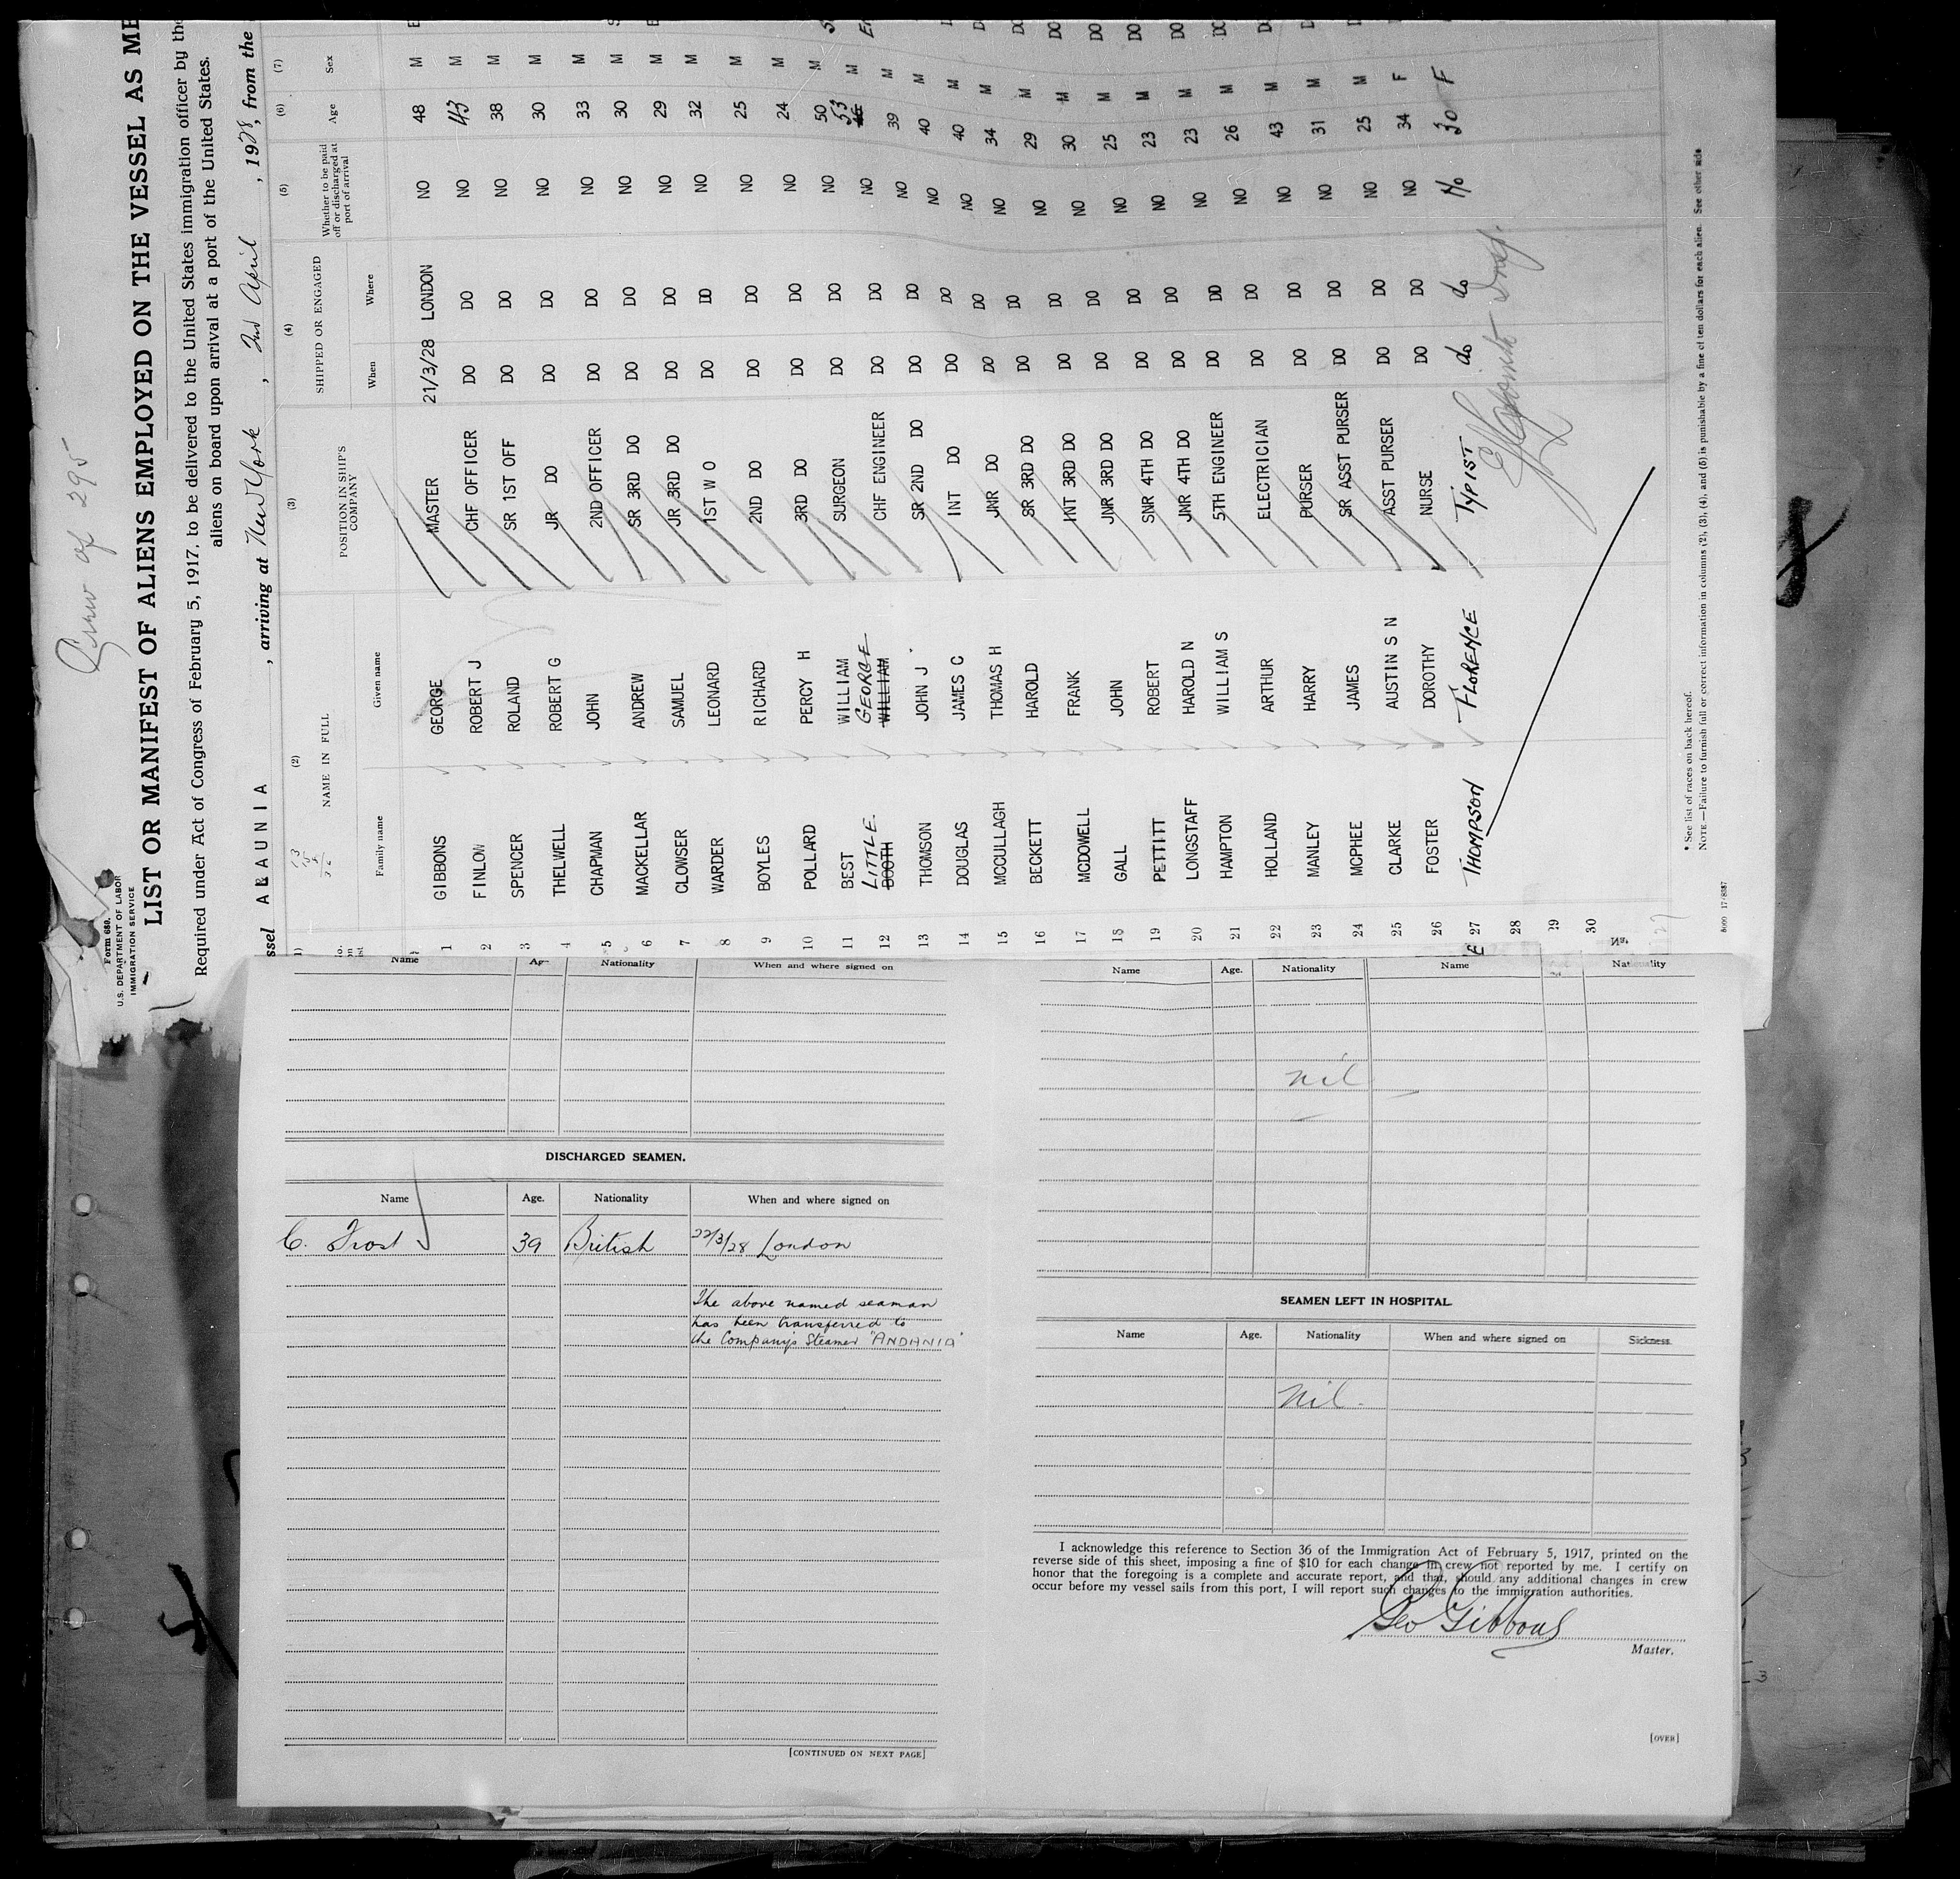 Crew of 295
Form 680.
U.S. DEPARTMENT OF LABOR
IMMIGRATION SERVICE
LIST OR MANIFEST OF ALIENS EMPLOYED ON THE VESSEL AS ME
Required under Act of Congress of February 5, 1917, to be delivered to the United States immigration officer by the
aliens on board upon arrival at a port of the United States.
ssel ALAUNIA , arriving at New York , 2nd April , 1928, from the
(2) (3) (4) (5) (6) (7)
NAME IN FULL POSITION IN SHIP'S COMPANY SHIPPED OR ENGAGED Whether to be paid off or discharged at port of arrival Age Sex
Family name Given name When Where
GIBBONS GEORGE MASTER 21/3/28 LONDON NO 48 M
1 FINLOW ROBERT J CHF OFFICER DO DO NO 43 M
2 SPENCER ROLAND SR 1ST OFF DO DO NO 38 M
3 THELWELL ROBERT G JR DO DO DO NO 30 M
4 CHAPMAN JOHN 2ND OFFICER DO DO NO 33 M
5 MACKELLAR ANDREW SR 3RD DO DO DO NO 30 M
6 CLOWSER SAMUEL JR 3RD DO DO DO NO 29 M
7 WARDER LEONARD 1ST W O DO DO NO 32 M
8 BOYLES RICHARD 2ND DO DO DO NO 25 M
9 POLLARD PERCY H 3RD DO DO DO NO 24 M
10 BEST WILLIAM SURGEON DO DO NO 50 M
11 LITTLE. BOOTH GEORGE WILLIAM CHF ENGINEER DO DO NO 53 46 M
12 THOMSON JOHN J SR 2ND DO DO DO NO 39 M
13 DOUGLAS JAMES C INT DO DO DO NO 40 M
14 MCCULLAGH THOMAS H JNR DO DO DO NO 40 M
15 BECKETT HAROLD SR 3RD DO DO DO NO 34 M
16 MCDOWELL FRANK INT 3RD DO DO DO NO 29 M
17 GALL JOHN JNR 3RD DO DO DO NO 30 M
18 PETTITT ROBERT SNR 4TH DO DO DO NO 25 M
19 LONGSTAFF HAROLD N JNR 4TH DO DO DO NO 23 M
20 HAMPTON WILLIAM S 5TH ENGINEER DO DO NO 23 M
21 HOLLAND ARTHUR ELECTRICIAN DO DO NO 26 M
22 MANLEY HARRY PURSER DO DO NO 43 M
23 MCPHEE JAMES SR ASST PURSER DO DO NO 31 M
24 CLARKE AUSTIN S N ASST PURSER DO DO NO 25 M
25 FOSTER DOROTHY NURSE DO DO NO 34 F
26 THOMPSON FLORENCE TYPIST do do No 30 F
27
28
29
30
* See list of races on back hereof.
NOTE —Failure to furnish full or correct information in columns (2), (3), (4), and (5) is punishable by a fine of ten dollars for each alien. See other side
Name Age Nationality When and where signed on
DISCHARGED SEAMEN.
Name Age. Nationality When and where signed on
C. Frost 39 British 22/3/28 London
The above named seaman
has been transferred to
the Company's Steamer "ANDANIA"
[CONTINUED ON NEXT PAGE]
Name Age. Nationality Name Nationality
nil
SEAMEN LEFT IN HOSPITAL
Name Age. Nationality When and where signed on Sickness.
Nil.
I acknowledge this reference to Section 36 of the Immigration Act of February 5, 1917, printed on the
reverse side of this sheet, imposing a fine of $10 for each change in crew not reported by me. I certify on
honor that the foregoing is a complete and accurate report, and that, should any additional changes in crew
occur before my vessel sails from this port, I will report such changes to the immigration authorities.
Geo Gibbons
Master.
[OVER]